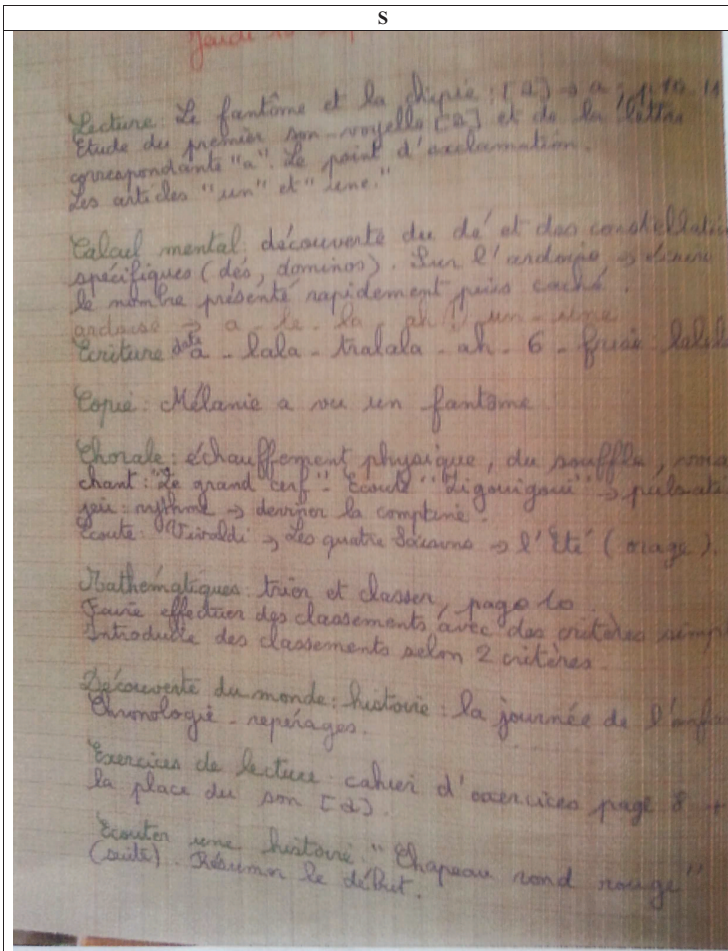 S
Jeudi
Lecture : Le fantôme et la chipie : [a] → a ; p.10. 11
Etude du premier son-voyelle [a] et de la lettre
correspondante "a". Le point d'exclamation.
Les articles "un" et "une."
Calcul mental : découverte du dé et des constellation
spécifiques (dés, dominos). Sur l'ardoise →
le nombre présenté rapidement puis caché.
ardoise → a - le - la ah ! un - une
Ecriture date a - lala - tralala - ah - 6 - frise
Copie : Mélanie a vu un fantôme
Chorale : échauffement physique, du souffle,
chant : "Le grand cerf" - Ecoute "Ligouigoui" → pulsati
jeu : rythme → deviner la comptine.
Ecoute : "Vivaldi → Les quatre Saisons → l'Eté (orage).
Mathématiques : trier et classer, page 10
Faire effectuer des classements avec des critères simpl
Introduire des classements selon 2 critères.
Découverte du monde : histoire : la journée de l'enfa
Chronologie - repérages.
Exercices de lecture : cahier d'exercices page 8 +
la place du son [a].
Ecouter une histoire : "Chapeau rond rouge"
(suite). Résumer le début.